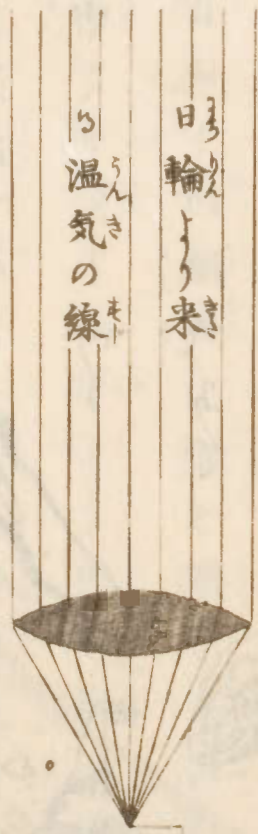 日輪より来
る温気の線